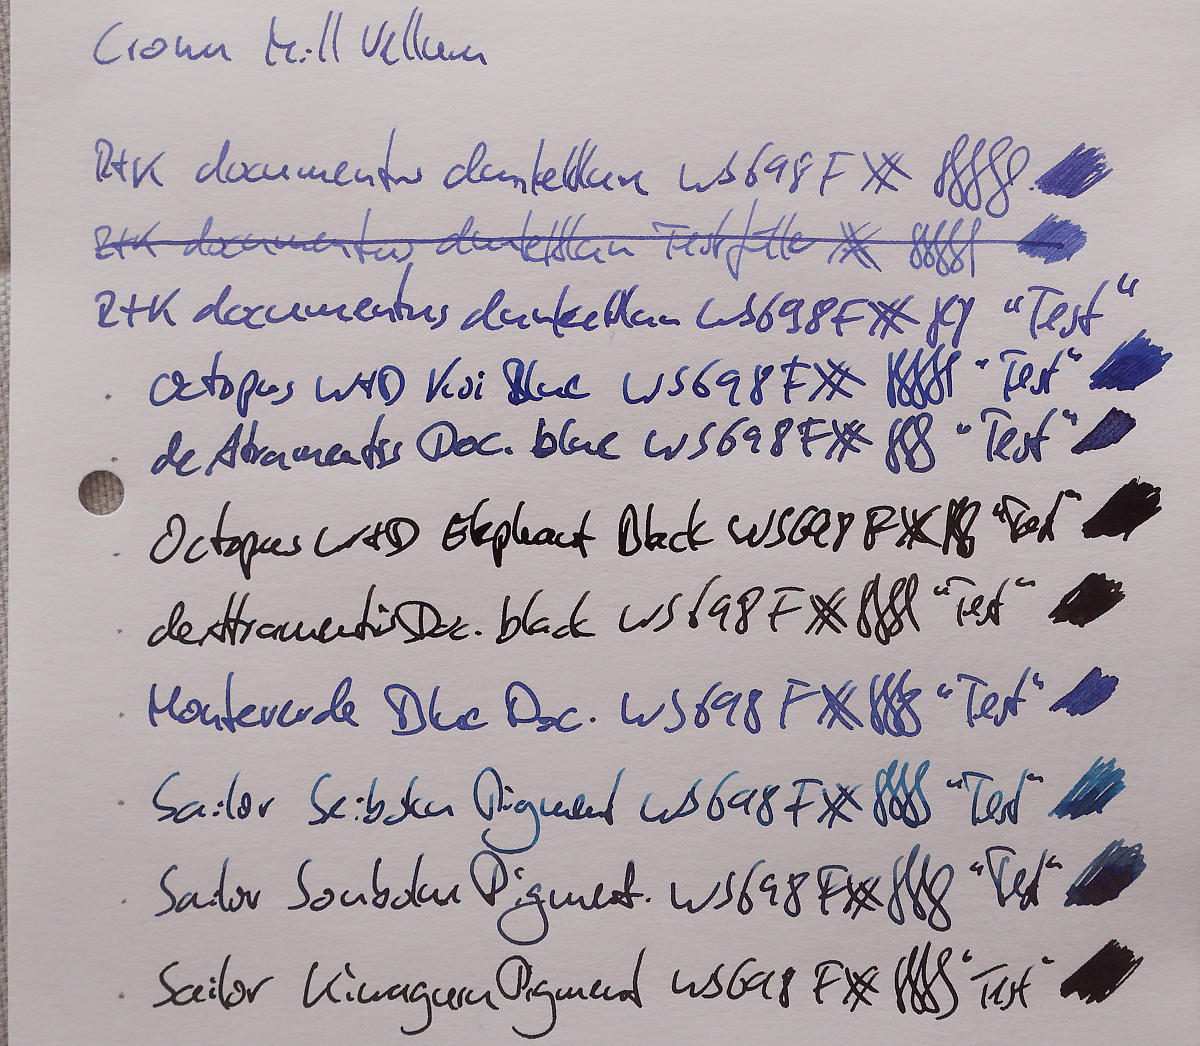 Crown Mill Vellum
R+K documentus dunkelblau WS698 F
R+K documentus dunkelblau Testfüller
R+K documentus dunkelblau WS698 F "Test"
Octopus W+D Koi Blue WS698 F "Test"
de Atramentis Doc. blue WS698 F "Test"
Octopus W+D Elephant Black WS698 F "Test"
de Atramentis Doc. black WS698 F "Test"
Monteverde Blue Doc. WS698 F "Test"
Sailor Seiboku Pigment WS698 F "Test"
Sailor Souboku Pigment. WS698 F "Test"
Sailor Kiwaguro Pigment WS698 F "Test"